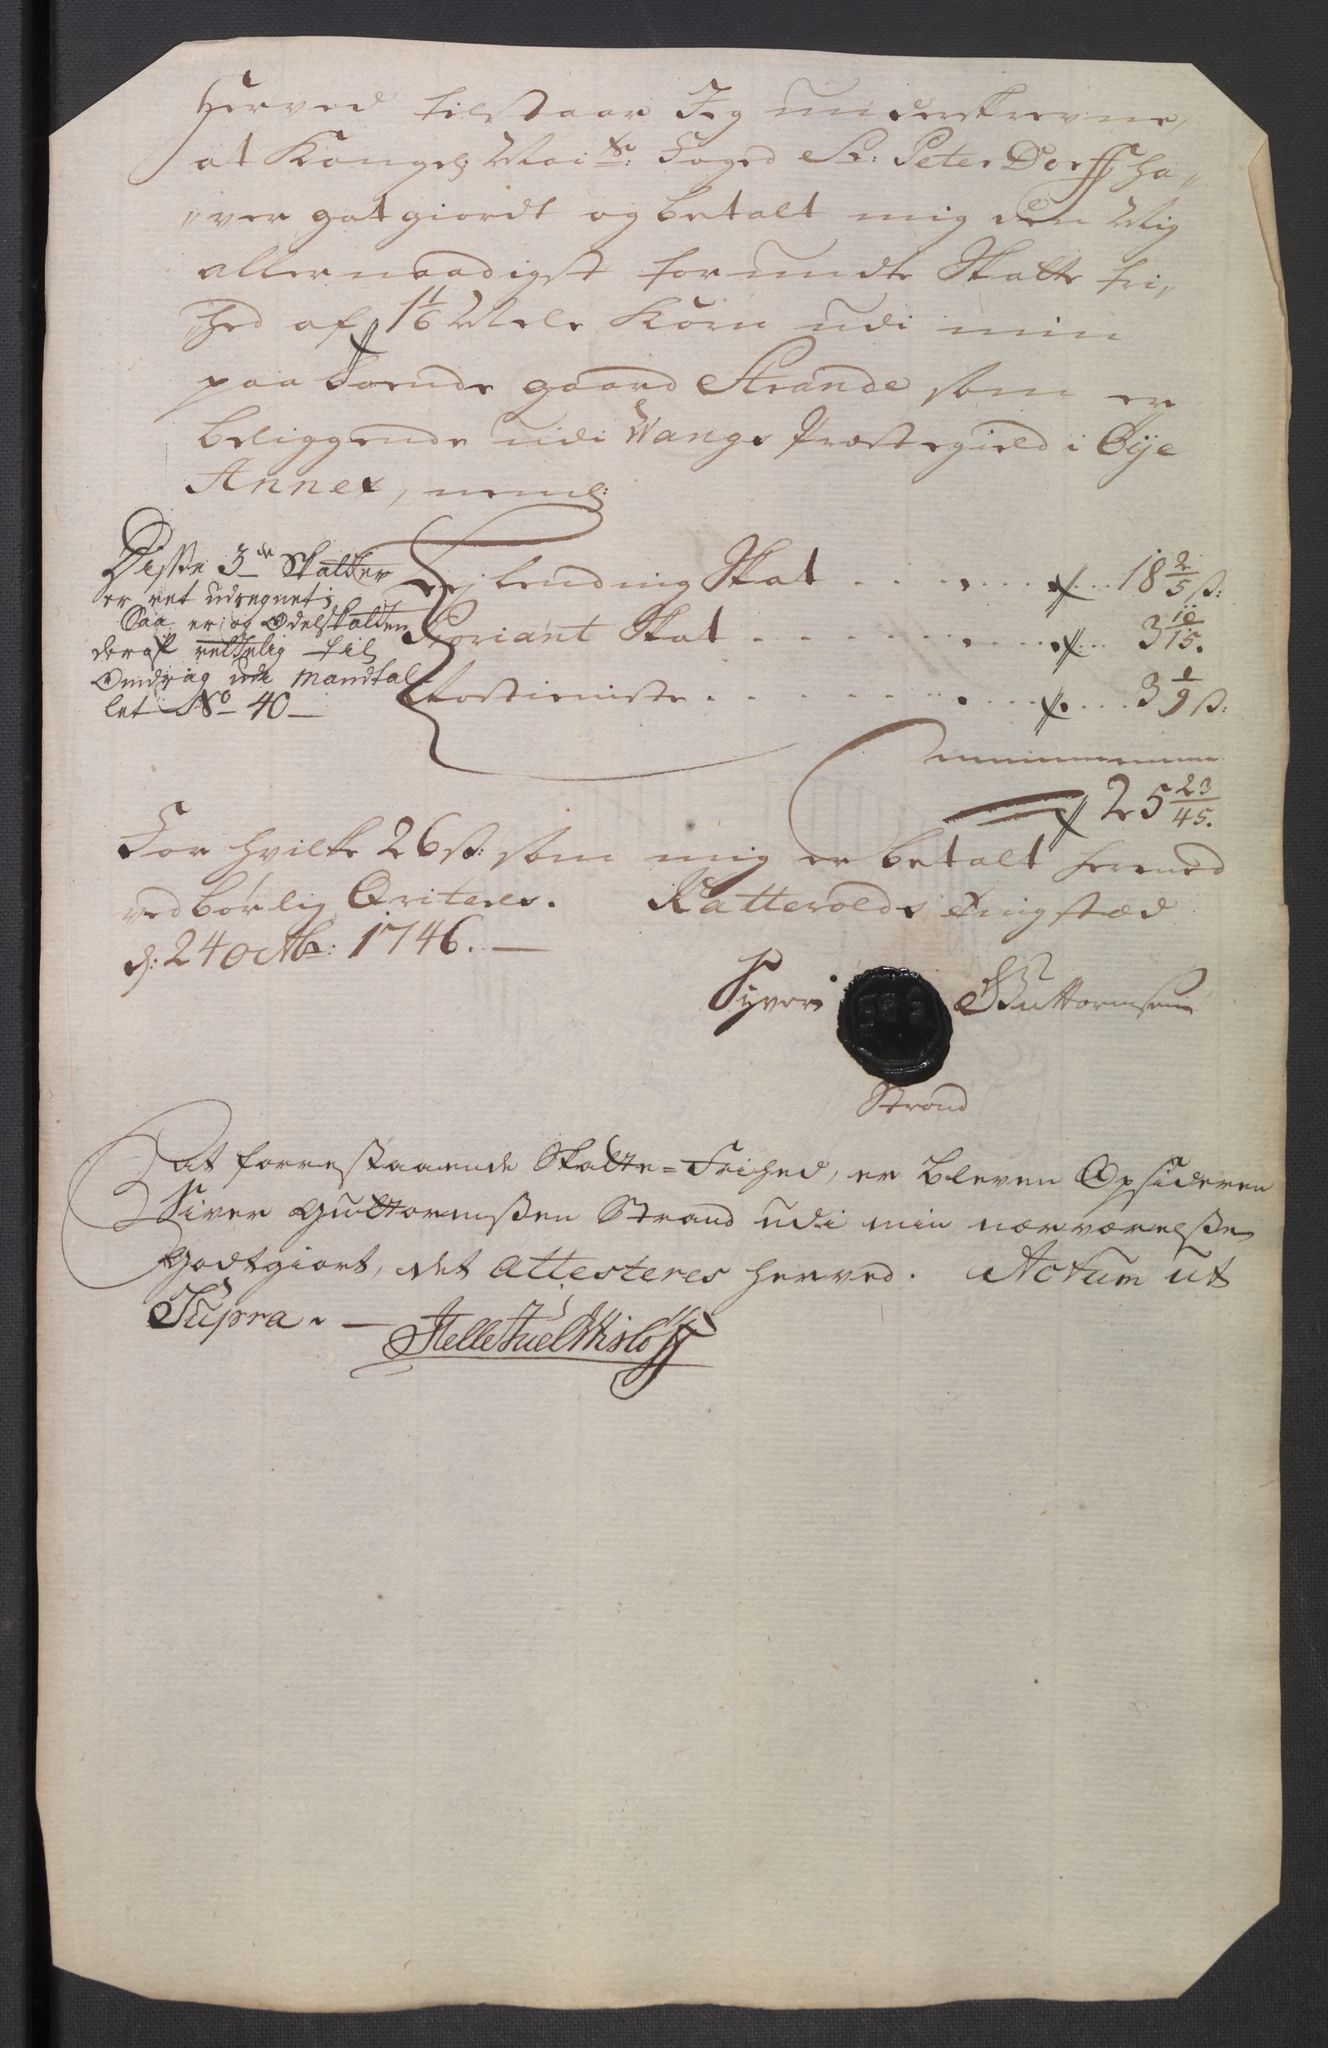 Herved tilstaar Jeg underskrevne,
at Kongel: Mai:ts Foged Sr: Peter Dorff ha„
„ver gotgiordt og betalt mig den Mig
allernaadigst forundte Skatte fri„
„hed af 1 1/6 Mele Korn udi min
paaboende gaard Strande som er
beliggende udi Wangs Præstegield i Øije
Annex, neml:
Disse 3de Skatter
er ret udregnet;
Saa er og Odelskatten
deraf rettelig til
Omdrag udi Mandtal
let No 40 —
Leylending Skat . . . . . . 18 2/5 s:
Proviant Skat . . . . . . 3 10/15.
Fostieniste . . . . . . 3 1/9 s:
25 23/45.
For hvilke 26 s: som mig er betalt hermed
vedbørlig Qviteres. Kattevolds Tingstæd
d: 24 octbr: 1746. —
Syver Guttormsen
Strand
At forrestaaende Skatte=Frihed, er bleven Opsideren
Siver Guttormsen Strand udi min nærværelsse
godtgiort, det attesteres herved. Actum ut
Supra. — Helle Juel Wisløff